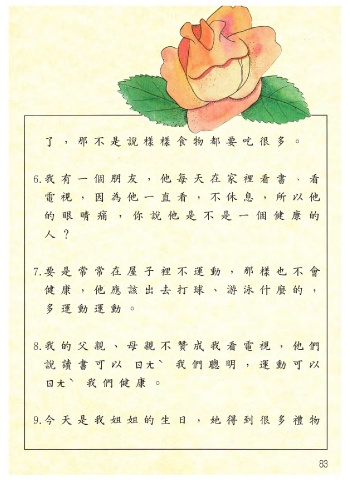 了，那不是說樣樣食物都要吃很多。
6.我有一個朋友，他每天在家裡看書、看
電視，因為他一直看，不休息，所以他
的眼睛痛，你說他是不是一個健康的
人？
7.要是常常在屋子裡不運動，那樣也不會
健康，他應該出去打球、游泳什麼的，
多運動運動。
8.我的父親、母親不贊成我看電視，他們
說讀書可以ㄖㄤˋ我們聰明，運動可以
ㄖㄤˋ我們健康。
9.今天是我姐姐的生日，她得到很多禮物
83